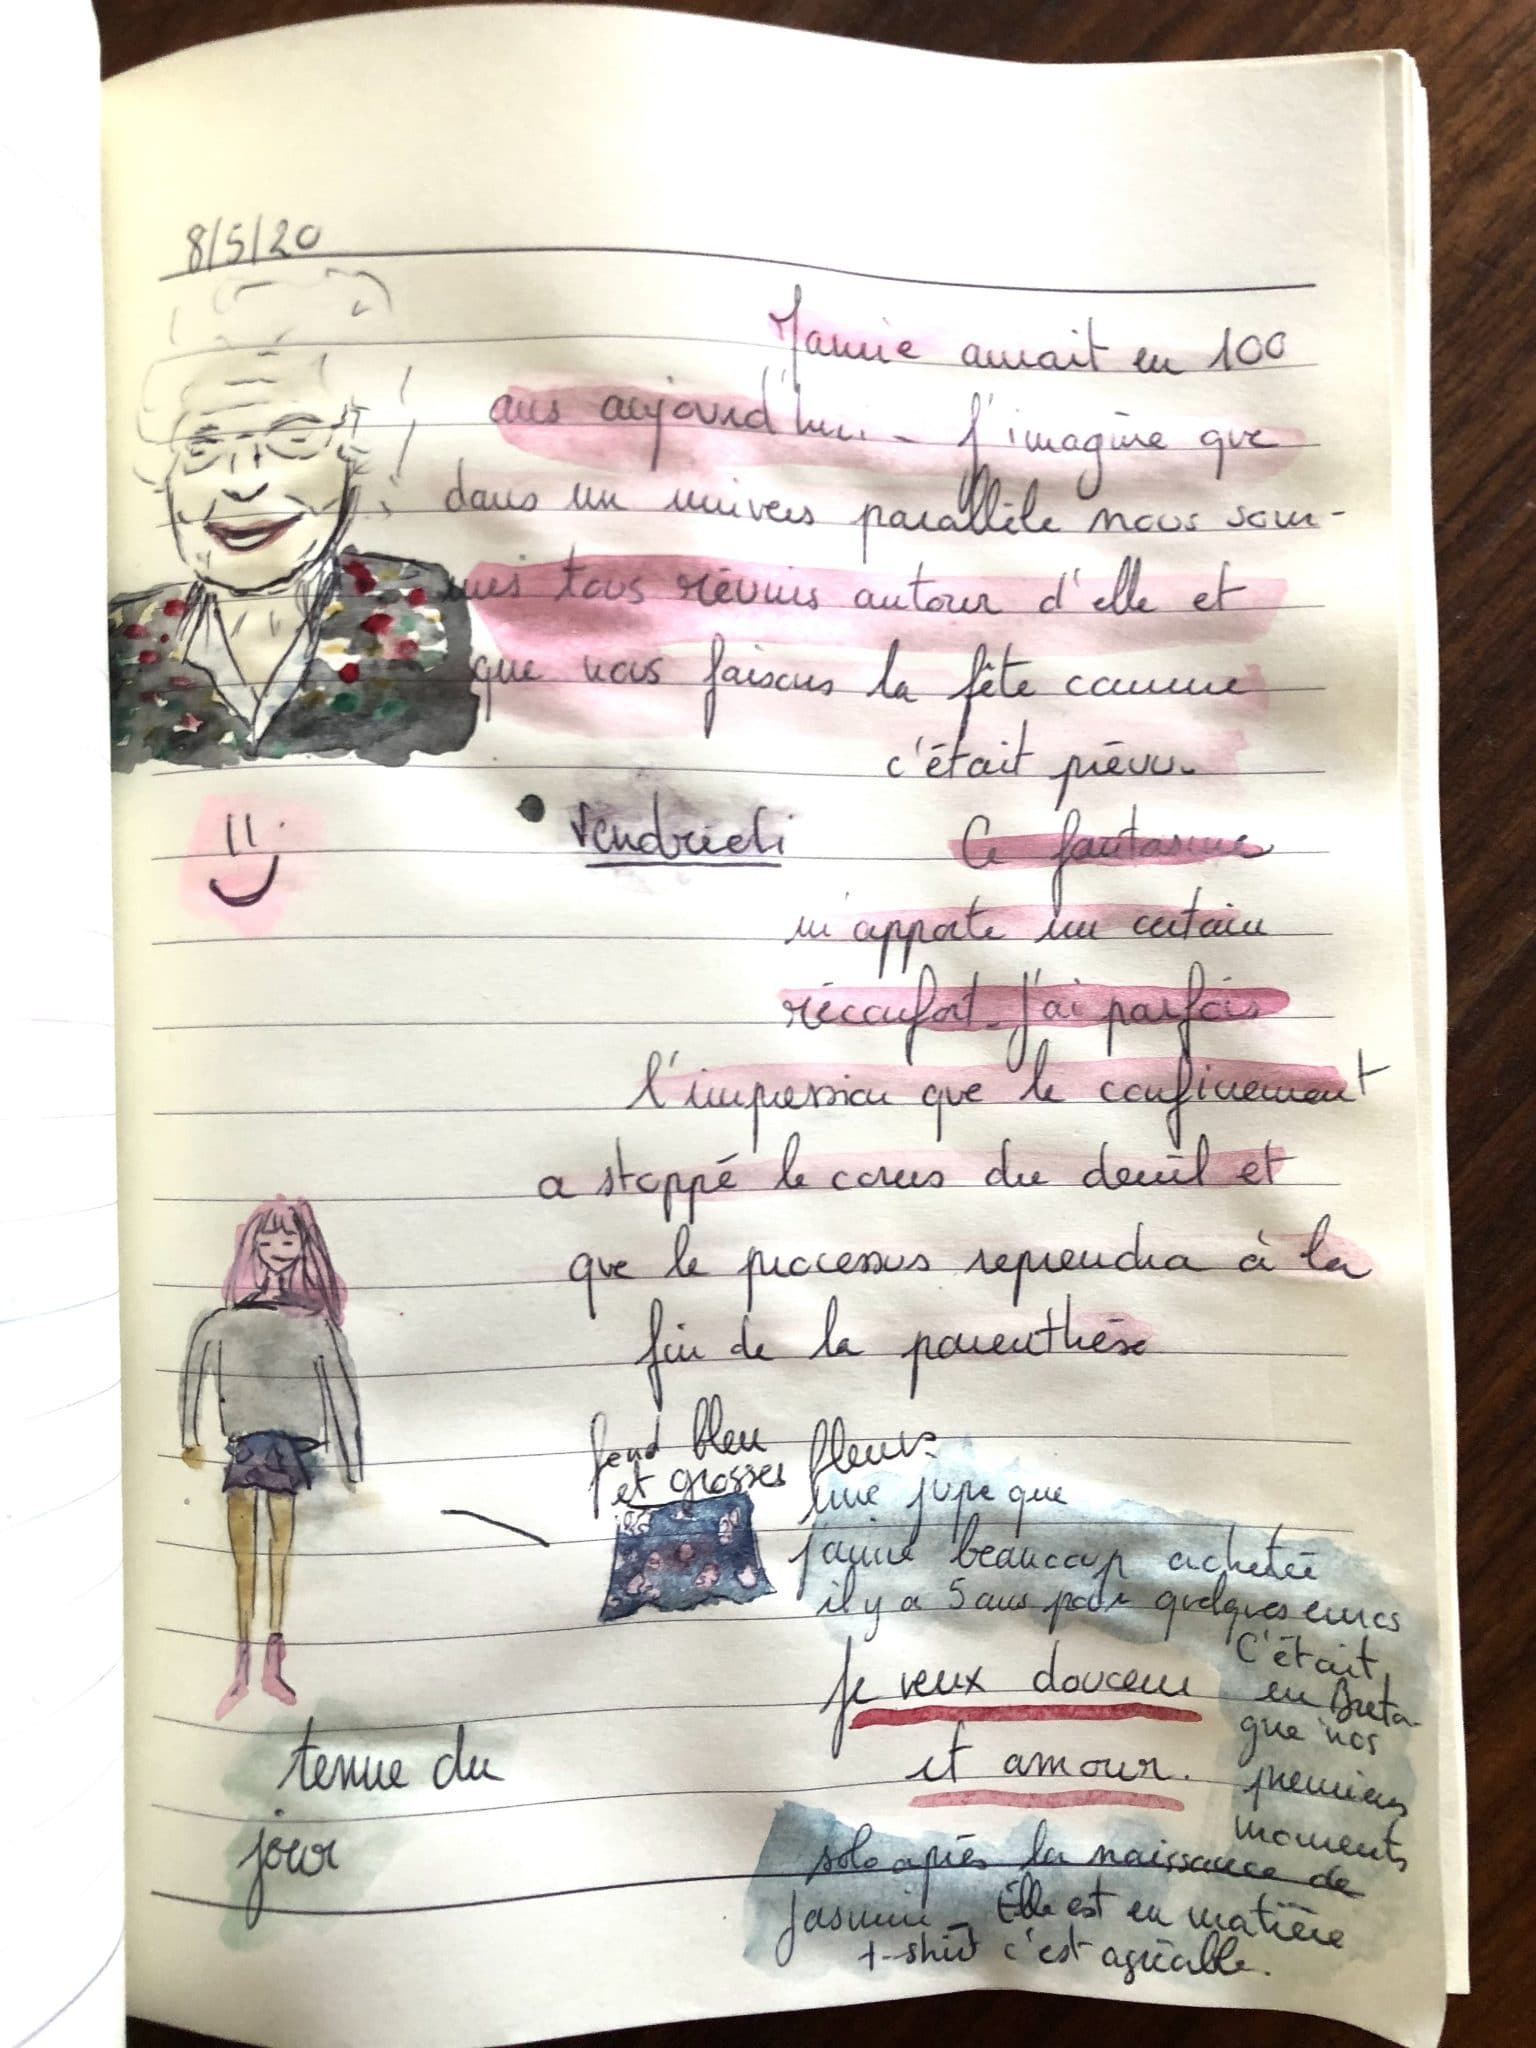 8/5/20
aurait eu 100
ans aujourd'hui. J'imagine que
dans un univers parallèle nous som-
mes tous réunis autour d'elle et
que nous faisons la fête comme
c'était prévu.
• Vendredi
Ce fantasme
m'apporte un certain
réconfort. J'ai parfois
l'impression que le confinement
a stoppé le cours du deuil et
que le processus reprendra à la
fin de la parenthèse
fond bleu
et grosses fleurs.
Une jupe que
j'aime beaucoup achetée
il y a 5 ans pour quelques euros
C'était
en Breta-
gne nos
premiers
moments
solo après la naissance de
Jasmin. Elle est en matière
t-shirt c'est agréable.
Je veux douceur
et amour.
tenue du
jour